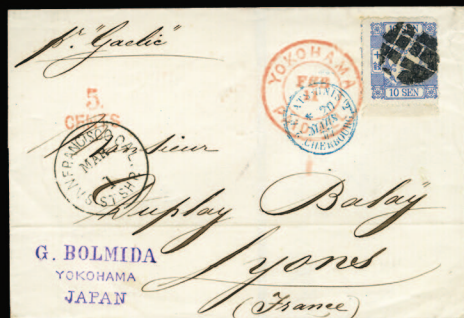 pr "Gaelic"
10 SEN
YOKOHAMA
FEB
5
CENTS
20
MARS
CHERBOURG
SAN FRANCISCO CAL.
MAR
1
Monsieur
Duplay Balay
Lyones
(France)
G. BOLMIDA
YOKOHAMA
JAPAN